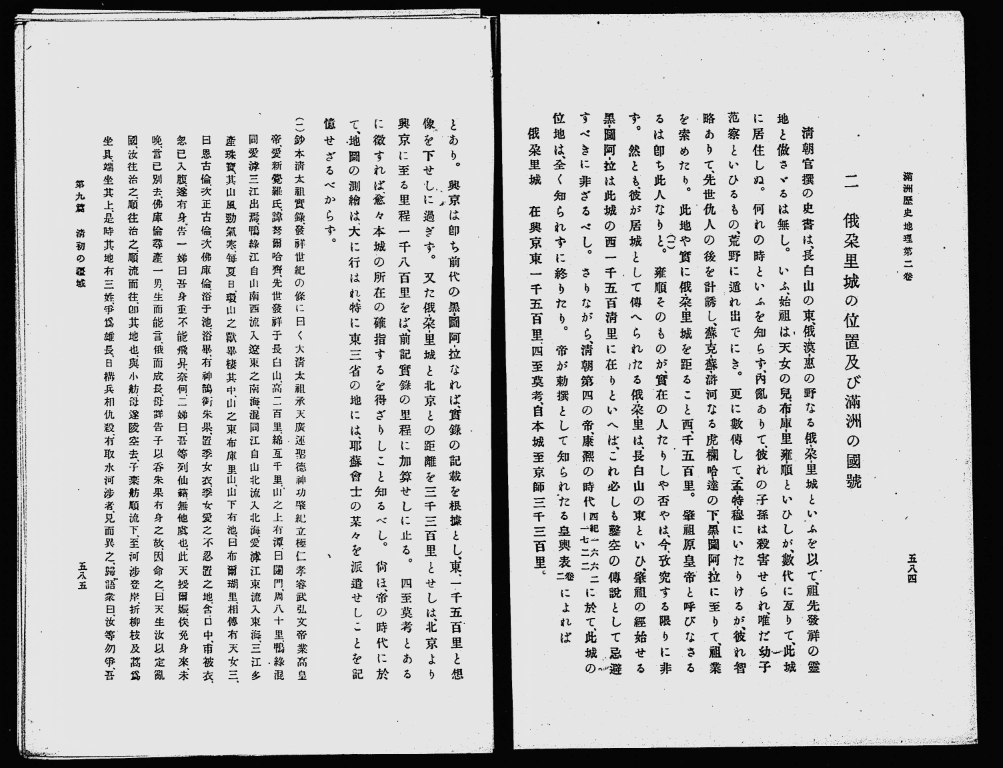 滿洲歷史地理第二卷
五八四
二　俄朶里城の位置及び滿洲の國號
清朝官撰の史書は、長白山の東俄漠惠の野なる俄朶里城といふを以て、祖先發祥の靈
地と做さゞるは無し。いふ、始祖は天女の兒、布庫里雍順といひしが、數代に亙りて、此城
に居住しぬ。何れの時といふを知らず、內亂ありて、彼れの子孫は殺害せられ、唯だ幼子
范察といひるもの、荒野に遁れ出でにき。更に數傳して孟特穆にいたりけるが、彼れ智
略ありて、先世仇人の後を計誘し、蘇克蘇滸河なる虎欄哈達の下、黑圖阿拉に至りて、祖業
を索めたり。此地や實に俄朶里城を距ること西、千五百里。肇祖原皇帝と呼びなさる
るは卽ち此人なりと。(一)雍順そのものが、實在の人たりしや否やは、今攷究する限りに非
ず。然とも彼が居城として傳へられたる俄朶里は、長白山の東といひ、肇祖の經始せる
黑圖阿拉は此城の西一千五百清里に在りといへば、これ必しも鑿空の傳說として忌避
すべきに非ざるべし。さりながら、清朝第四の帝、康熙の時代西紀一六六二—一七二二に於て、此城の
位地は、全く知られずに終りたり。帝が勅撰として知られたる皇輿表卷二によれば
俄朶里城　在興京東一千五百里、四至莫考、自本城至京師三千三百里。
とあり。興京は卽ち前代の黑圖阿拉なれば、實錄の記載を根據とし、東一千五百里と想
像を下せしに過ぎず。又た俄朶里城と北京との距離を三千三百里とせしは、北京より
興京に至る里程一千八百里をば、前記實錄の里程に加算せしに止る。四至莫考とある
に徵すれば、愈々本城の所在の確指するを得ざりしこと知るべし。尙ほ帝の時代に於
て、地圖の測繪は大に行はれ、特に東三省の地には、耶蘇會士の某々を派遣せしことを記
憶せざるべからず。
(一)鈔本清太祖實錄發祥世紀の條に曰く大清太祖承天廣運聖德神功肇紀立極仁孝睿武弘文帝業高皇
帝、愛新覺羅氏、諱弩爾哈齊、先世發祥于長白山、高二百里、綿亙千里、山之上有潭曰闥門、周八十里、鴨綠混
同愛滹三江出焉、鴨綠江自山南西流入遼東之南海、混同江自山北流入北海、愛滹江東流入東海、三江多
產珠寶、其山風勁氣寒、每夏日、環山之獸畢棲其中、山之東布庫里山、山下有池、曰布爾瑚里、相傳有天女三、
曰恩古倫、次正古倫、次佛庫倫、浴于池、浴畢、有神鵲銜朱果、置季女衣、季女愛之不忍置之地、含口中、甫被衣、
忽已入腹、遂有身、告一姊曰、吾身重不能飛昇、奈何、二姊曰、吾等列仙籍、無他虞也、此天授爾娠、俟免身來、未
晚、言已別去、佛庫倫尋產一男、生而能言、俄而成長、母詳告子以呑朱果有身之故、因命之曰、天生汝以定亂
國、汝往治之、順往治之、順流而往、卽其地也、與小舫、母遂陵空去、子乘舫順流下、至河涉登岸、折柳枝及蒿爲
坐具、端坐其上、是時其地有三姓、爭爲雄長、日搆兵相仇殺、有取水河涉者、見而異之、歸語衆曰、汝等勿爭、吾
第九篇　清初の疆域
五八五